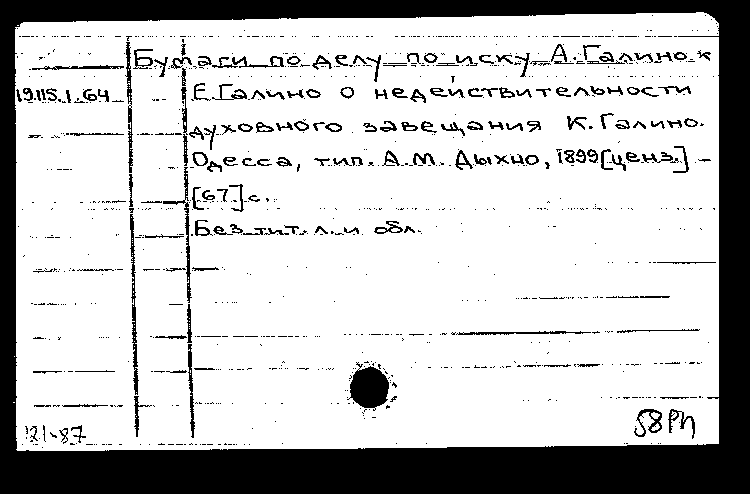 Бумаги по делу по иску А. Галино к
19.115.1.64 Е. Галино о недействительности
духовного завещания К. Галино.
Одесса, тип. А.М. Дыхно, 1899 [ценз.] –
[67] с.
Без тит. л. и обл.
121-87